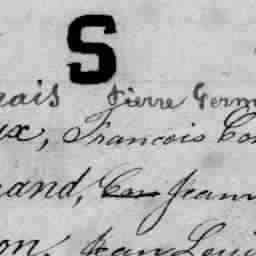 S
rais Pierre Germ
ux, Francois Con
rand, Jean
on, Jean Loui